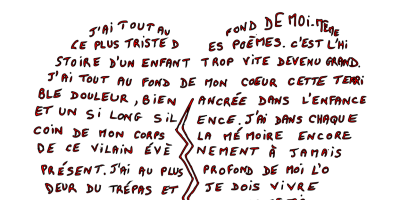 J'AI TOUT AU FOND DE MOI-MÊME
LE PLUS TRISTE DES POÈMES. C'EST L'HI
STOIRE D'UN ENFANT TROP VITE DEVENU GRAND.
J'AI TOUT AU FOND DE MON COEUR CETTE TERRI
BLE DOULEUR, BIEN ANCRÉE DANS L'ENFANCE
ET UN SI LONG SILENCE. J'AI DANS CHAQUE
COIN DE MON CORPS LA MÉMOIRE ENCORE
DE CE VILAIN ÉVÈNEMENT À JAMAIS
PRÉSENT. J'AI AU PLUS PROFOND DE MOI L'O
DEUR DU TRÉPAS ET JE DOIS VIVRE